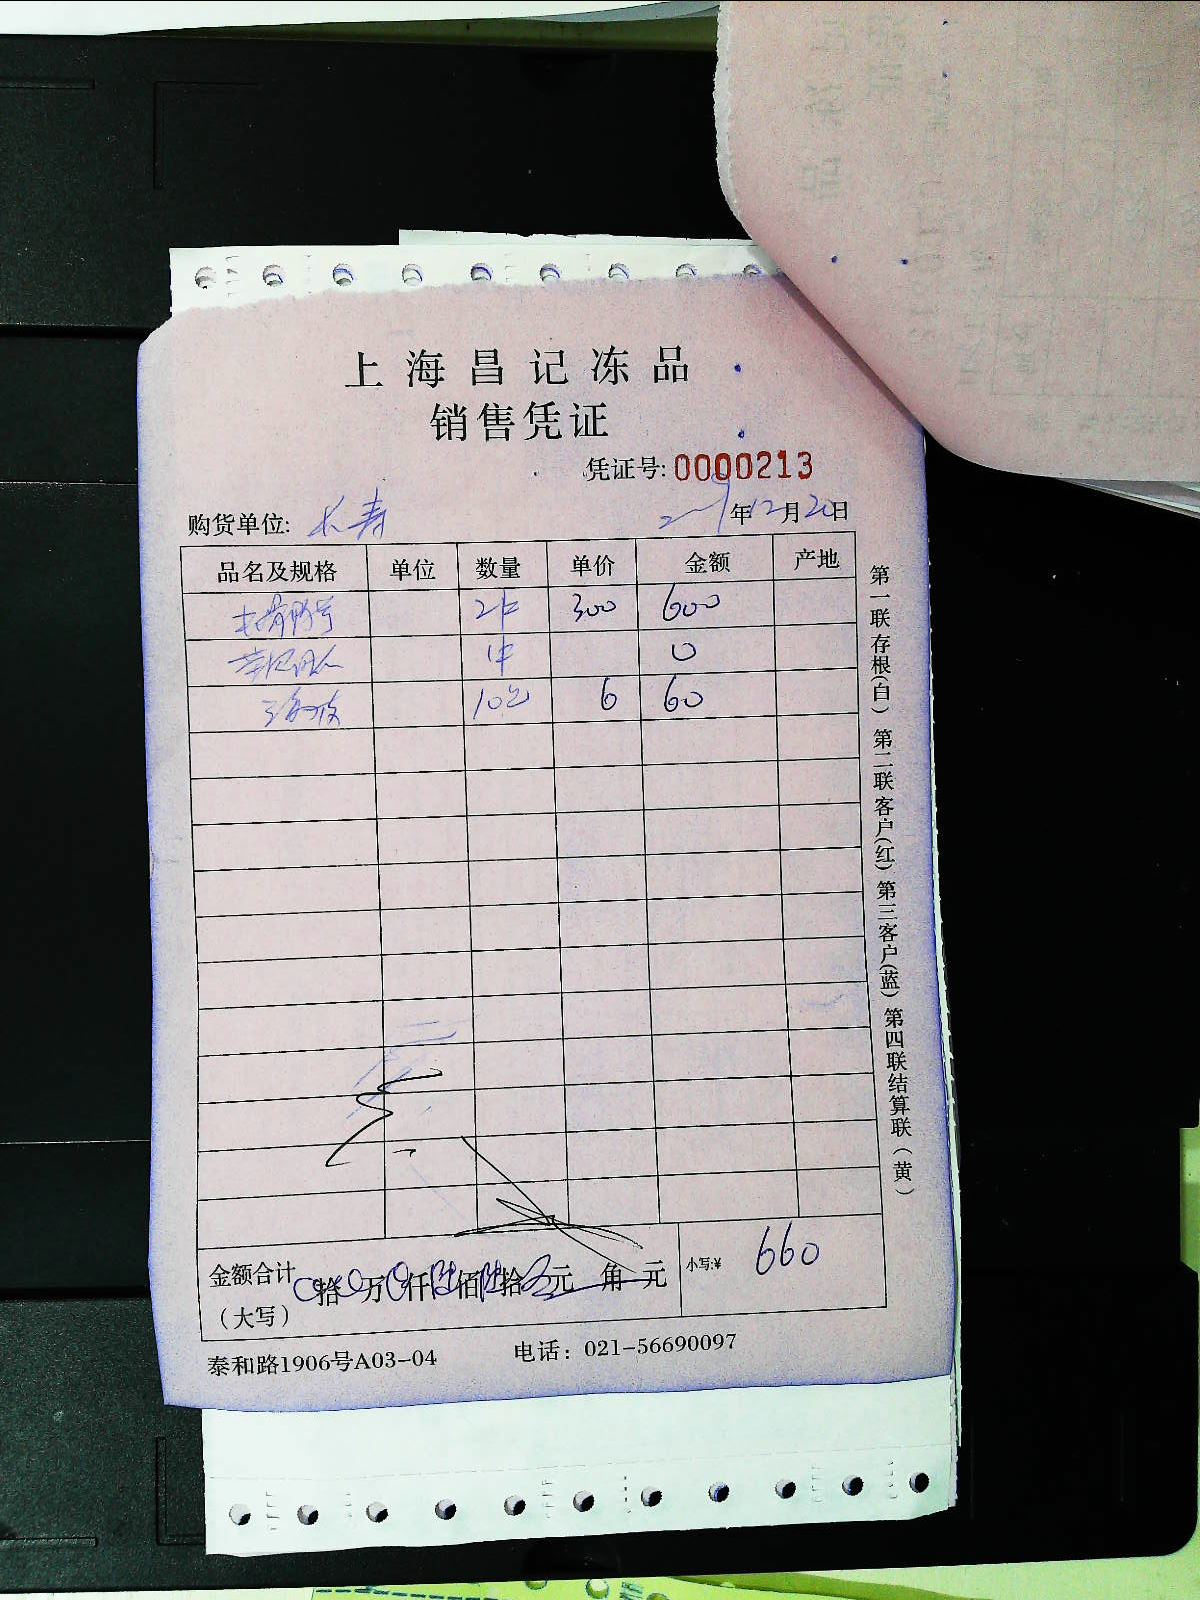 上海昌记冻品
销售凭证
凭证号: 0000213
购货单位: 长寿 年12月20日
品名及规格 单位 数量 单价 金额 产地
2件 300 600
1件 0
10包 6 60
金额合计 拾万仟陆佰陆拾元角元 小写:¥ 660
（大写）
泰和路1906号A03-04 电话：021-56690097
第一联存根(白) 第二联客户(红) 第三客户(蓝) 第四联结算联（黄）